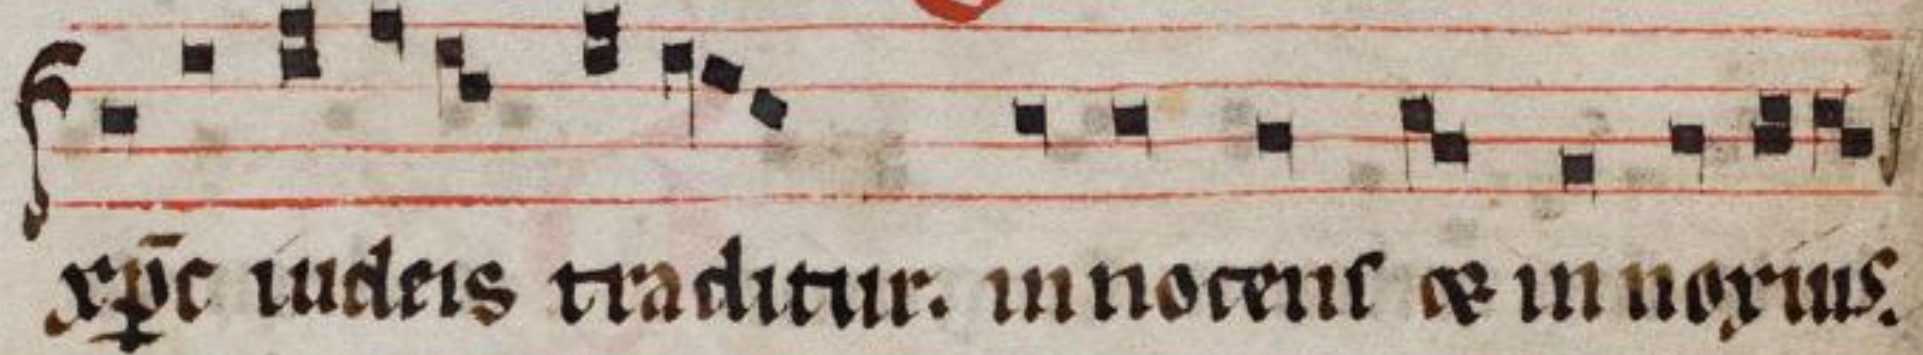 xp̄c iudeis traditur. innocens & innoxius.